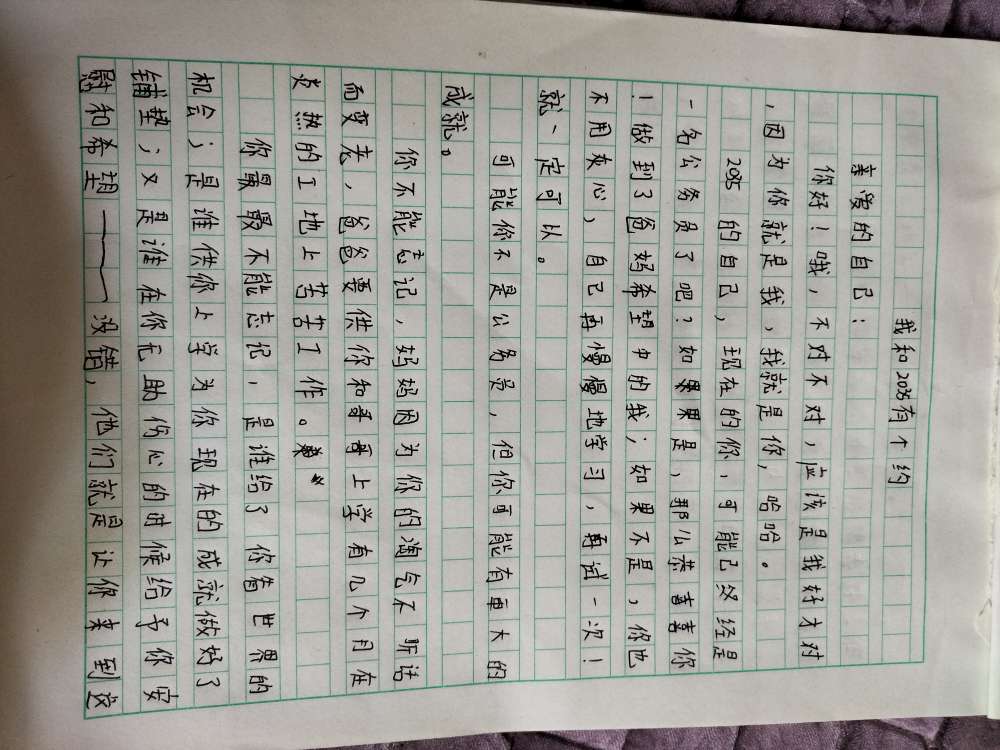 我和2035有个约
亲爱的自己：
你好！哦，不对不对，应该是我好才对
，因为你就是我，我就是你，哈哈。
2035的自己，现在的你，可能已经是
一名公务员了吧？如果是，那么恭喜喜你
！做到了爸妈希望中的我；如果不是，你也
不用灰心，自己再慢慢地学习，再试一次！
就一定可以。
可能你不是公务员，但你可能有更大的
成就。
你不能忘记，妈妈因为你的淘气不听话
而变老，爸爸要供你和哥哥上学有几个月在
炎热的工地上苦苦工作。
你最最不能忘记，是谁给了你看世界的
机会；是谁供你上学为你现在的成就做好了
铺垫；又是谁在你无助伤心的时候给予你安
慰和希望——没错，他们就是让你来到这